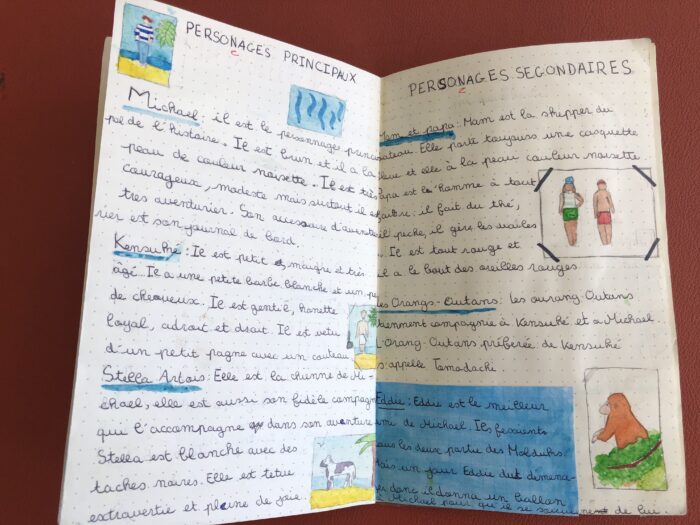 PERSONAGES PRINCIPAUX
Michael : il est le personnage princi
pal de l'histoire. Il est brun et il a la
peau de couleur noisette. Il est très
courageux, modeste mais surtout il est
tres aventurier. Son accessoire d'aventu
rier est son journal de bord.
Kensuké : Il est petit maigre et très
âgé. Il a une petite barbe blanche et un peu
de cheveux. Il est gentil, honette
loyal, adroit et droit. Il est vetu
d'un petit pagne avec un couteau
Stella Artois : Elle est la chienne de Mi-
chael, elle est aussi son fidèle compagne
qui l'accompagne dans son aventure
Stella est blanche avec des
taches noires. Elle est tetue
extravertie et pleine de joie.
PERSONAGES SEGONDAIRES
Mam et papa : Mam est la skipper du
bateau. Elle porte toujours une casquette
bleue et elle à la peau couleur noisette
Papa est le homme à tout
faire : il fait du thé,
il peche, il gère les voiles
. Il est tout rouge et
il a le bout des oreilles rouges
Les Orangs-Outans : les ourang-Outans
tiennent compagnie à Kensuké et a Michael
L'Orang-Outans préférée de Kensuké
s'appelle Tomodachi
Eddie : Eddie est le meilleur
ami de Michael. Ils
tous les deux partie des
Mais un jour Eddie dut démena-
donc il donna un ballon
a Michael pour qu'il se souviennent de lui.